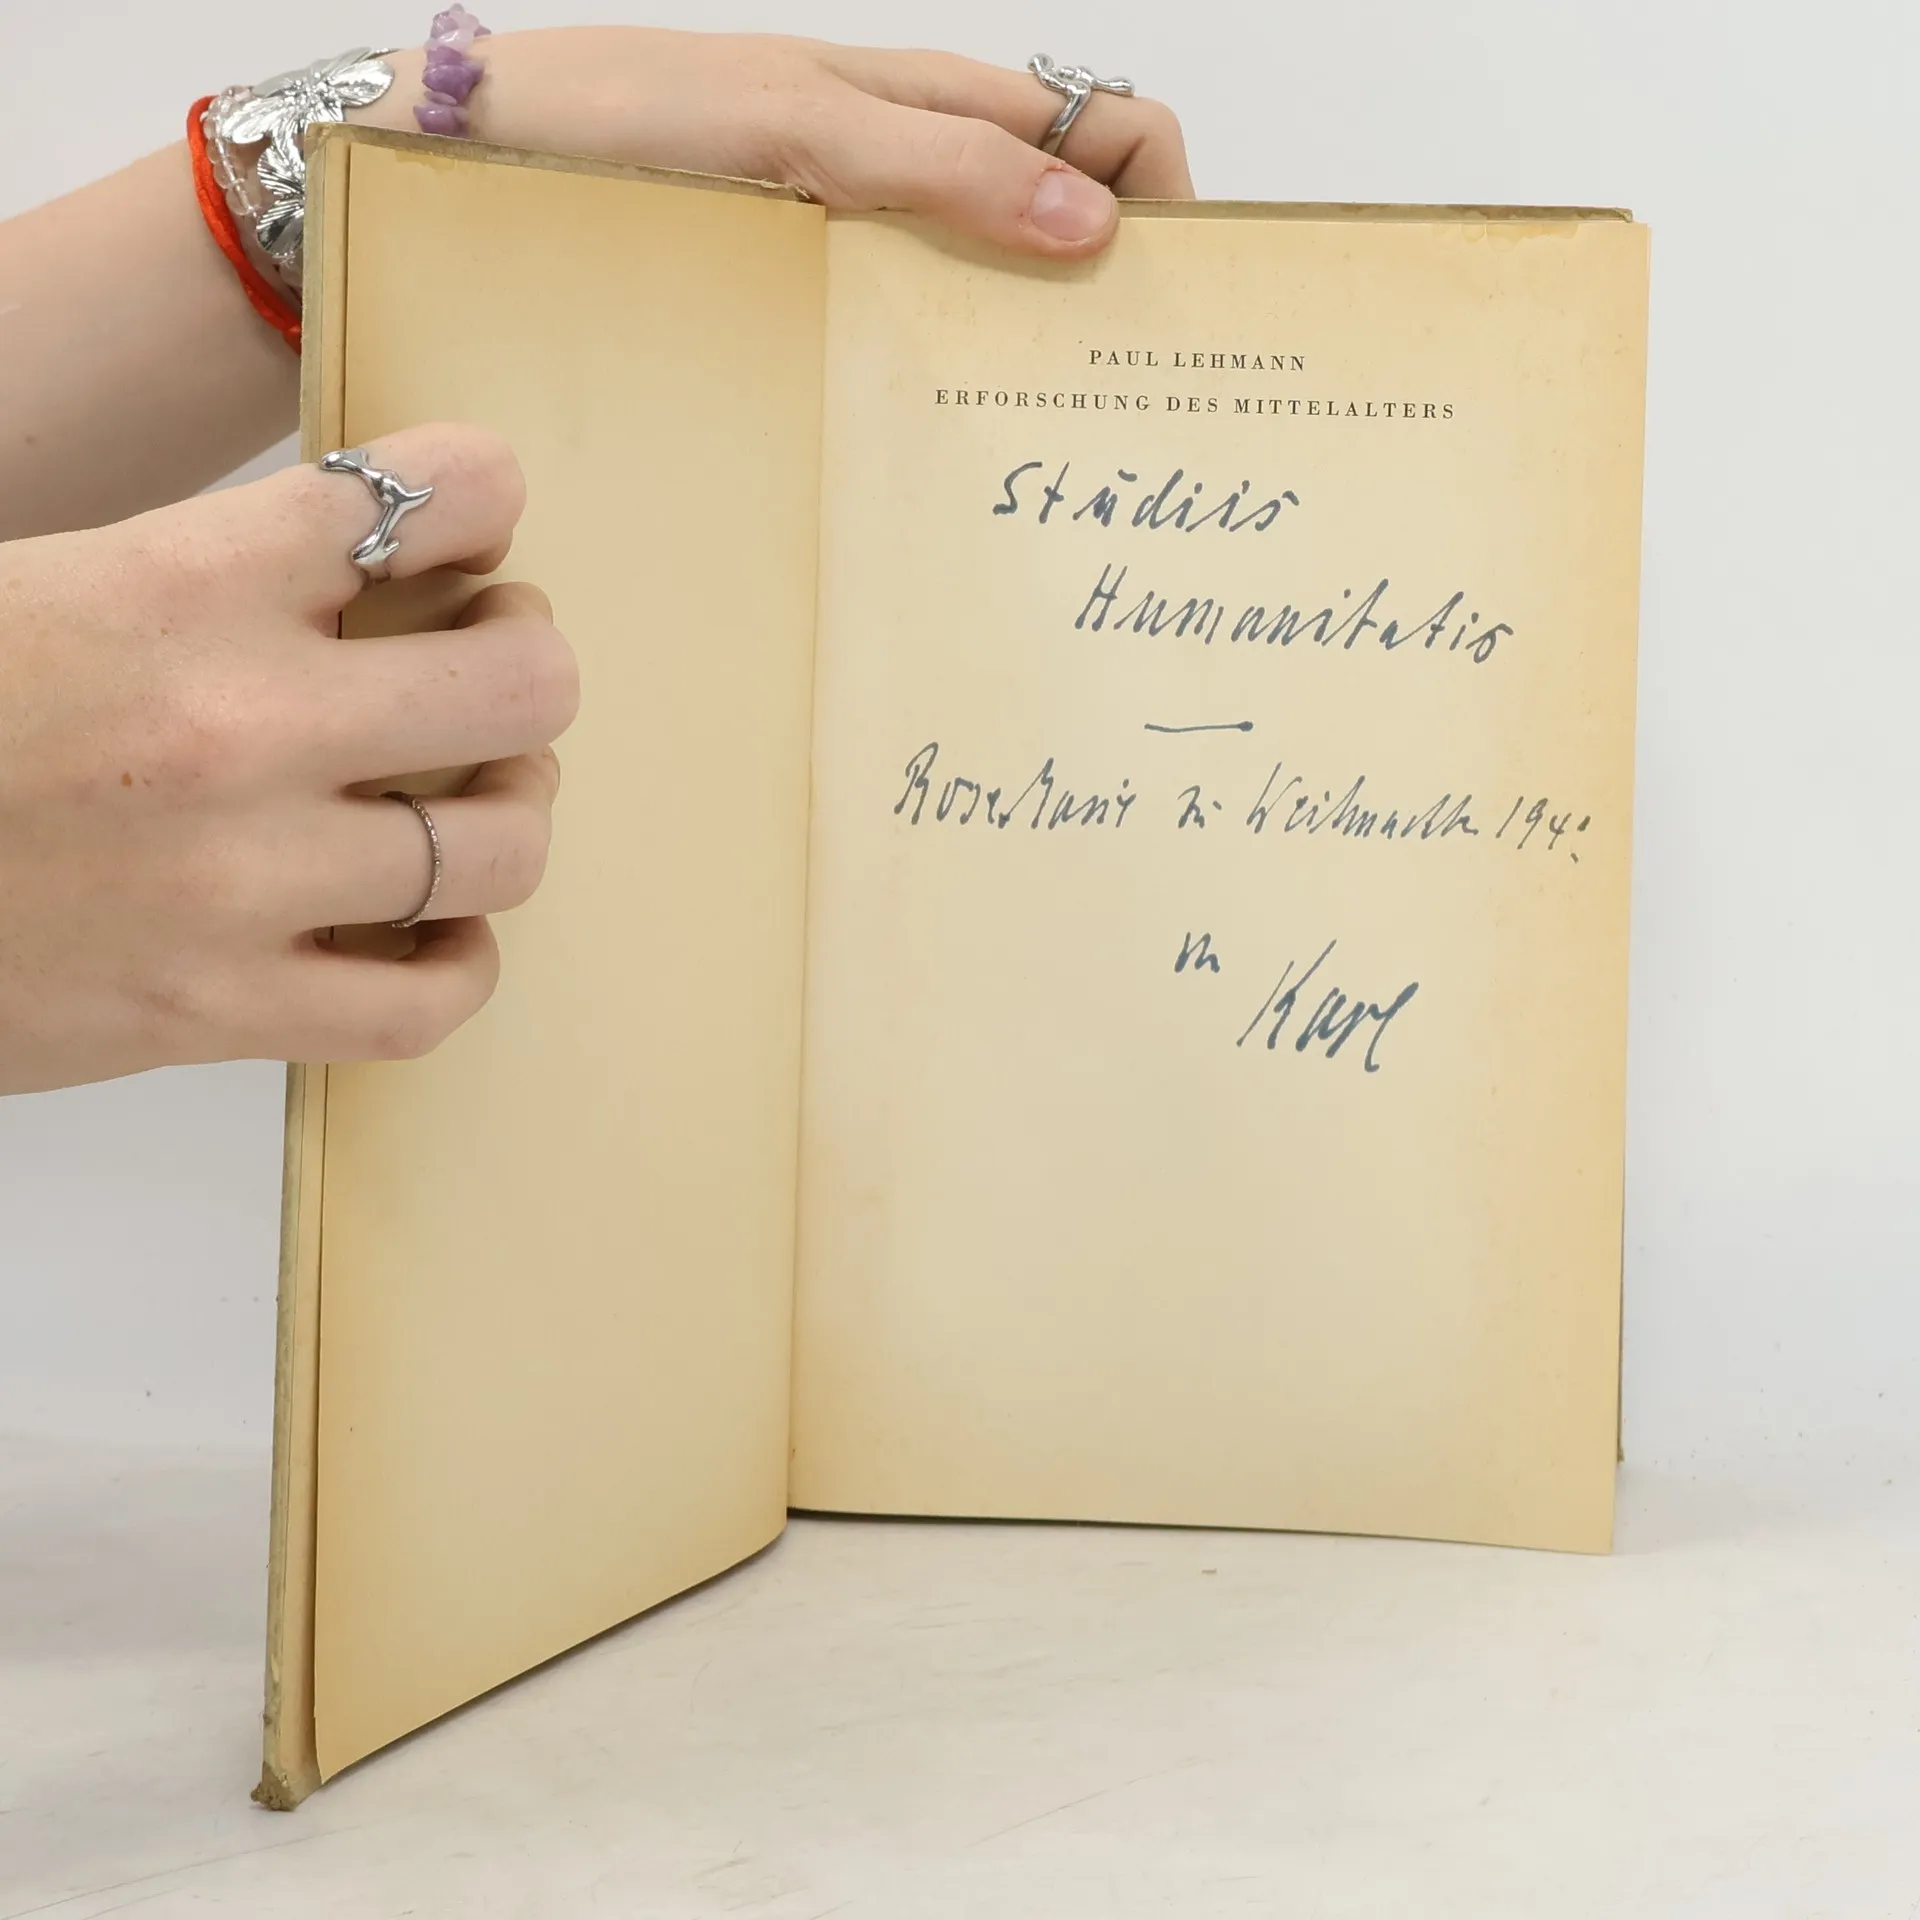 PAUL LEHMANN
ERFORSCHUNG DES MITTELALTERS
Studiis
Humanitatis
Rosemarie zu Weihnachten
Karl